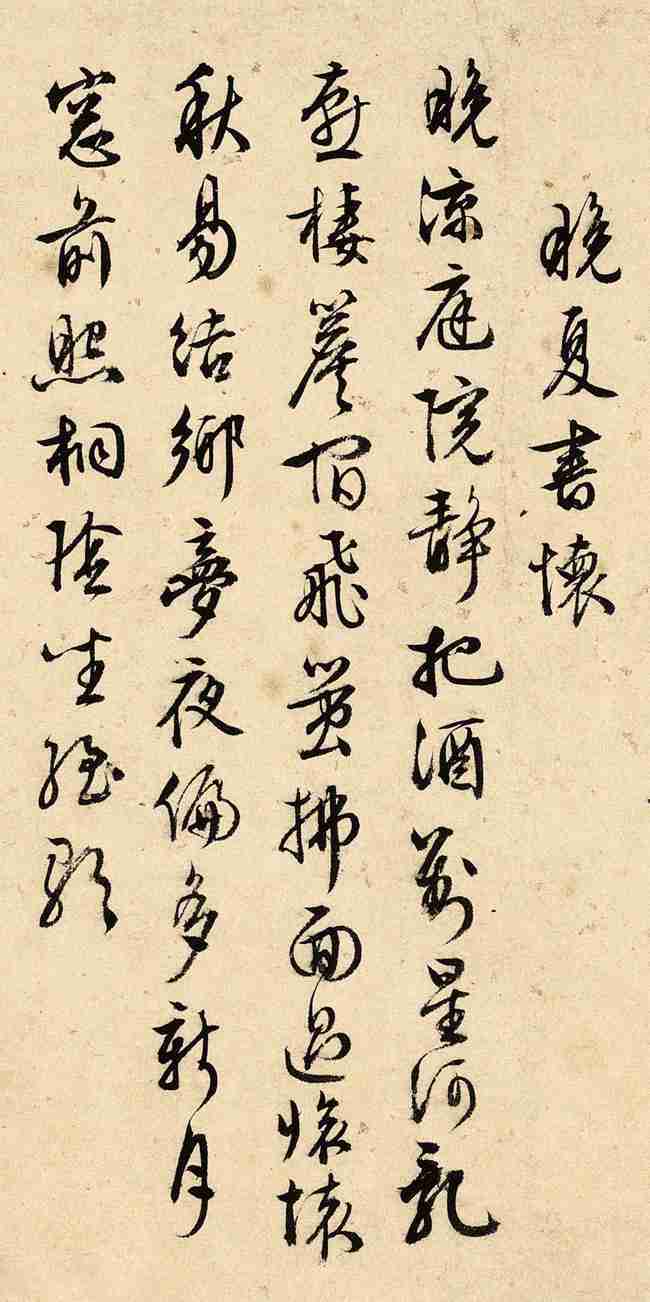 晚夏書懷
晚涼庭院靜把酒對星河乳
燕棲簷宿飛螢拂面過懷
秋易結鄉夢夜偏多新月
窗前照桐陰坐歌